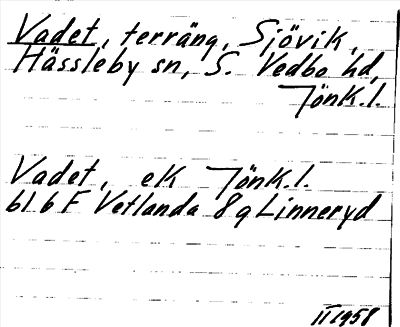 Vadet, terräng, Sjövik,
Hässleby sn, S. Vedbo hd,
Jönk.l.
Vadet, ek Jönk.l.
bl 6 F Vetlanda 8 g Linneryd
II 1958